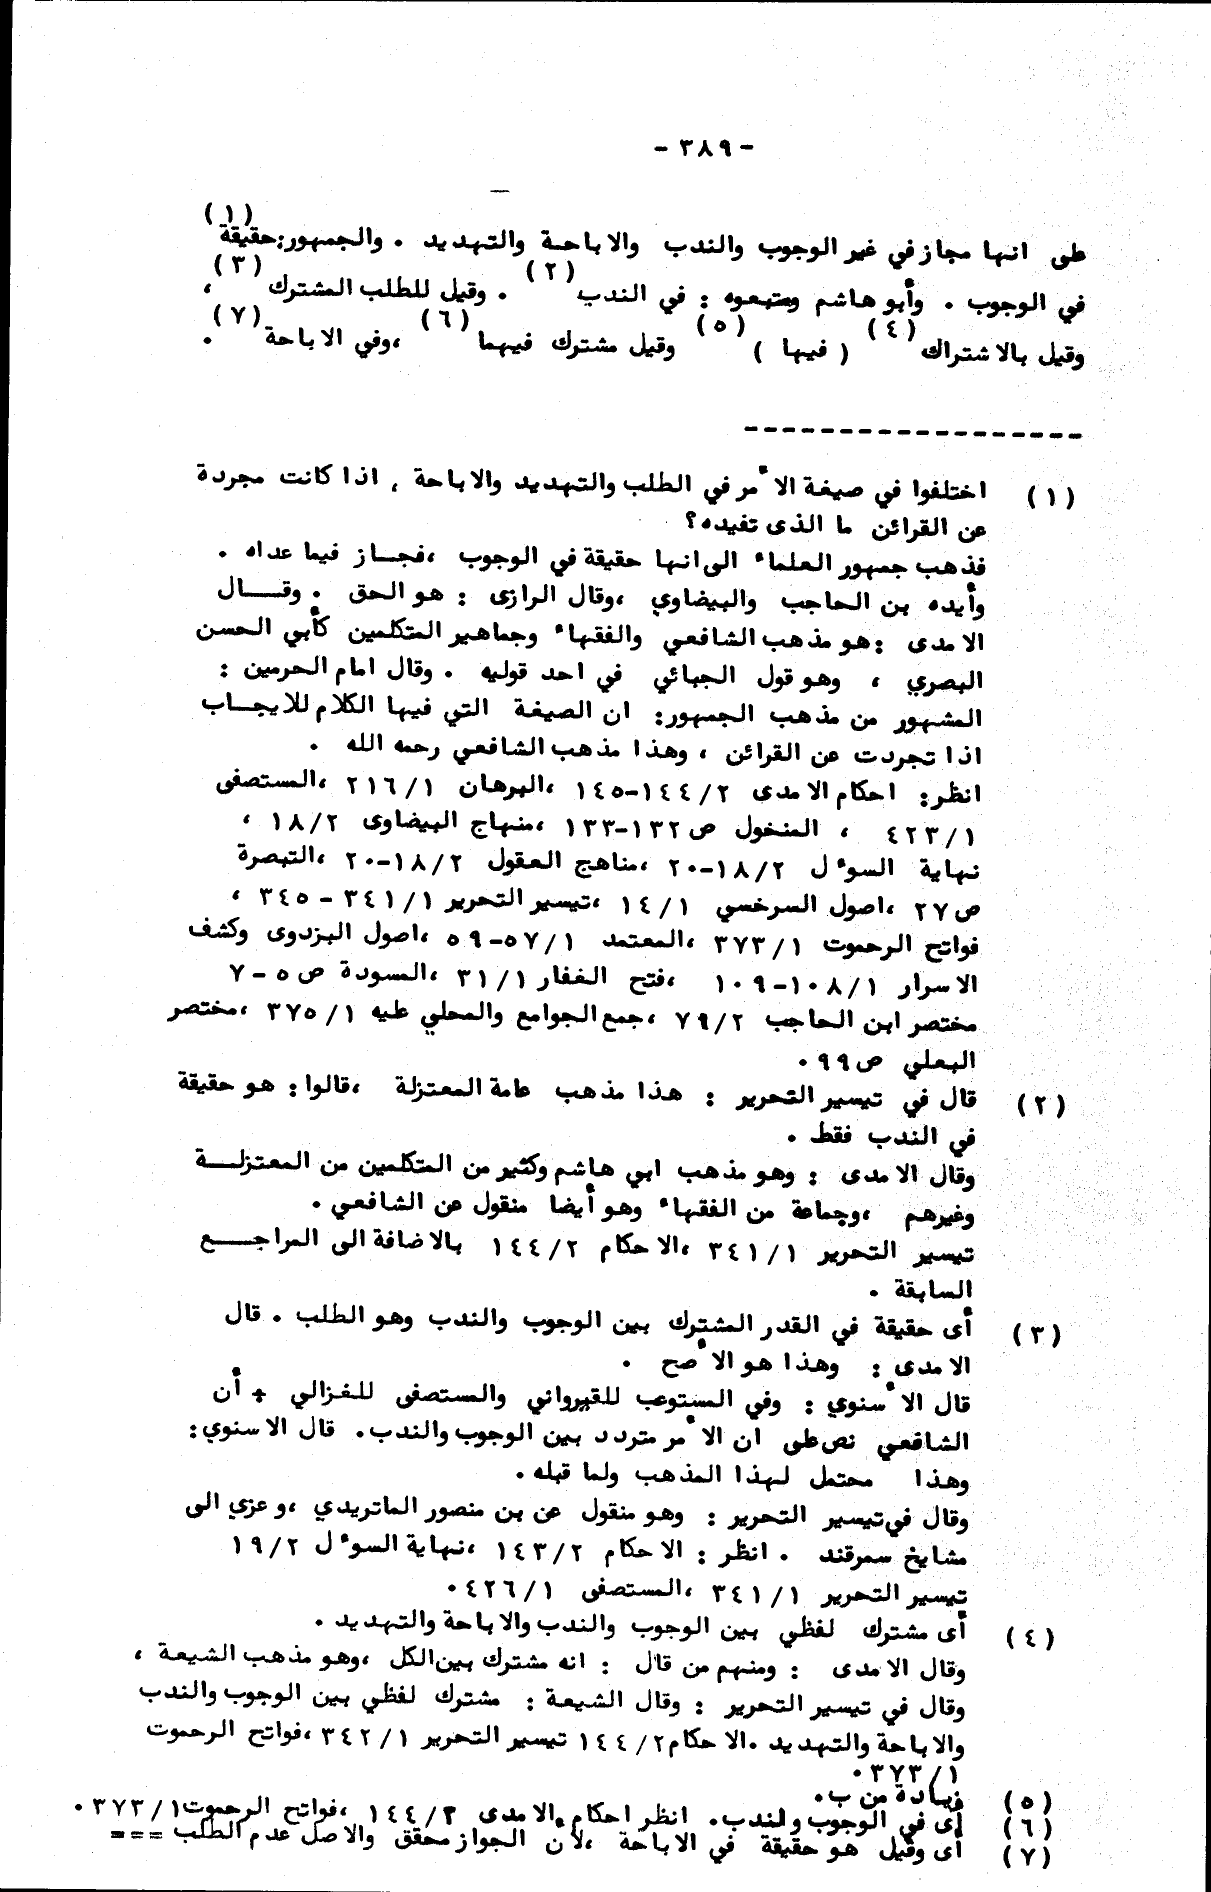 - ٣٨٩ -
على انها مجاز في غير الوجوب والندب والاباحة والتهديد . والجمهور: حقيقة (١)
في الوجوب . وأبو هاشم ومتبعوه : في الندب (٢) . وقيل للطلب المشترك (٣) ،
وقيل بالاشتراك (٤) ( فيها ) (٥) وقيل مشترك فيهما (٦) ،وفي الاباحة (٧) .
(١) اختلفوا في صيغة الأمر في الطلب والتهديد والاباحة ، اذا كانت مجردة
عن القرائن ما الذى تفيده؟
فذهب جمهور العلماء الى انها حقيقة في الوجوب ،فجـاز فيما عداه .
وأيده بن الحاجب والبيضاوي ،وقال الرازى : هو الحق . وقــال
الامدى : هو مذهب الشافعي والفقهاء وجماهير المتكلمين كأبي الحسن
البصري ، وهو قول الجبائي في احد قوليه . وقال امام الحرمين :
المشهور من مذهب الجمهور: ان الصيغة التي فيها الكلام للايجـاب
اذا تجردت عن القرائن ، وهذا مذهب الشافعي رحمه الله .
انظر: احكام الامدى ١٤٤/٢-١٤٥ ،البرهان ٢١٦/١ ،المستصفى
٤٢٣/١ ، المنخول ص١٣٢-١٣٣ ،منهاج البيضاوى ١٨/٢ ،
نهاية السوءل ١٨/٢-٢٠ ،مناهج العقول ١٨/٢-٢٠ ،التبصرة
ص٢٧ ،اصول السرخسي ١٤/١ ،تيسير التحرير ٣٤١/١ - ٣٤٥ ،
فواتح الرحموت ٣٧٣/١ ،المعتمد ٥٧/١-٥٩ ،اصول البزدوى وكشف
الاسرار ١٠٨/١-١٠٩ ،فتح الغفار ٣١/١ ،المسودة ص٥-٧
مختصر ابن الحاجب ٧٩/٢ ،جمع الجوامع والمحلي عليه ٣٧٥/١ ،مختصر
البعلي ص٩٩ .
(٢) قال في تيسير التحرير : هذا مذهب عامة المعتزلة ،قالوا : هو حقيقة
في الندب فقط .
وقال الامدى : وهو مذهب ابي هاشم وكثير من المتكلمين من المعتزلــة
وغيرهم ،وجماعة من الفقهاء وهو أيضا منقول عن الشافعي .
تيسير التحرير ٣٤١/١ ،الاحكام ١٤٤/٢ بالاضافة الى المراجــع
السابقة .
(٣) أى حقيقة في القدر المشترك بين الوجوب والندب وهو الطلب . قال
الامدى : وهذا هو الأصح .
قال الأسنوي : وفي المستوعب للقيرواني والمستصفى للغزالي + أن
الشافعي نص على ان الأمر متردد بين الوجوب والندب. قال الاسنوي:
وهذا محتمل لهذا المذهب ولما قبله .
وقال في تيسير التحرير : وهو منقول عن بن منصور الماتريدي ،وعزي الى
مشايخ سمرقند . انظر : الاحكام ١٤٣/٢ ،نهاية السوءل ١٩/٢
تيسير التحرير ٣٤١/١ ،المستصفى ٤٢٦/١ .
(٤) أى مشترك لفظي بين الوجوب والندب والاباحة والتهديد .
وقال الامدى : ومنهم من قال : انه مشترك بين الكل ،وهو مذهب الشيعة ،
وقال في تيسير التحرير : وقال الشيعة : مشترك لفظي بين الوجوب والندب
والاباحة والتهديد .الاحكام١٤٤/٢ تيسير التحرير ٣٤٢/١ ،فواتح الرحموت
٣٧٣/١ .
(٥) زيادة من ب.
(٦) أى في الوجوب ولندب. انظر احكام الامدى ١٤٤/٢ ،فواتح الرحموت٣٧٣/١ .
(٧) أى وقيل هو حقيقة في الاباحة ،لأن الجواز محقق والاصل عدم الطلب ===